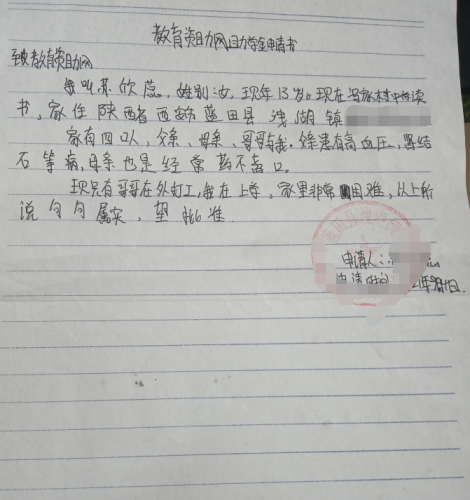 教育资助网助学金申请书
致教育资助网
我叫苏欣蕊，姓别:女，现年13岁。现在冯家村中读
书，家住陕西省西安市蓝田县洩湖镇
家有四口人，父亲、母亲、哥哥与我。父亲患有高血压，胃结
石等病，母亲也是经常药不离口。
现只有哥哥在外打工，我在上学，家里非常困难，以上所
说句句属实，望批准
申请人：
申请时间